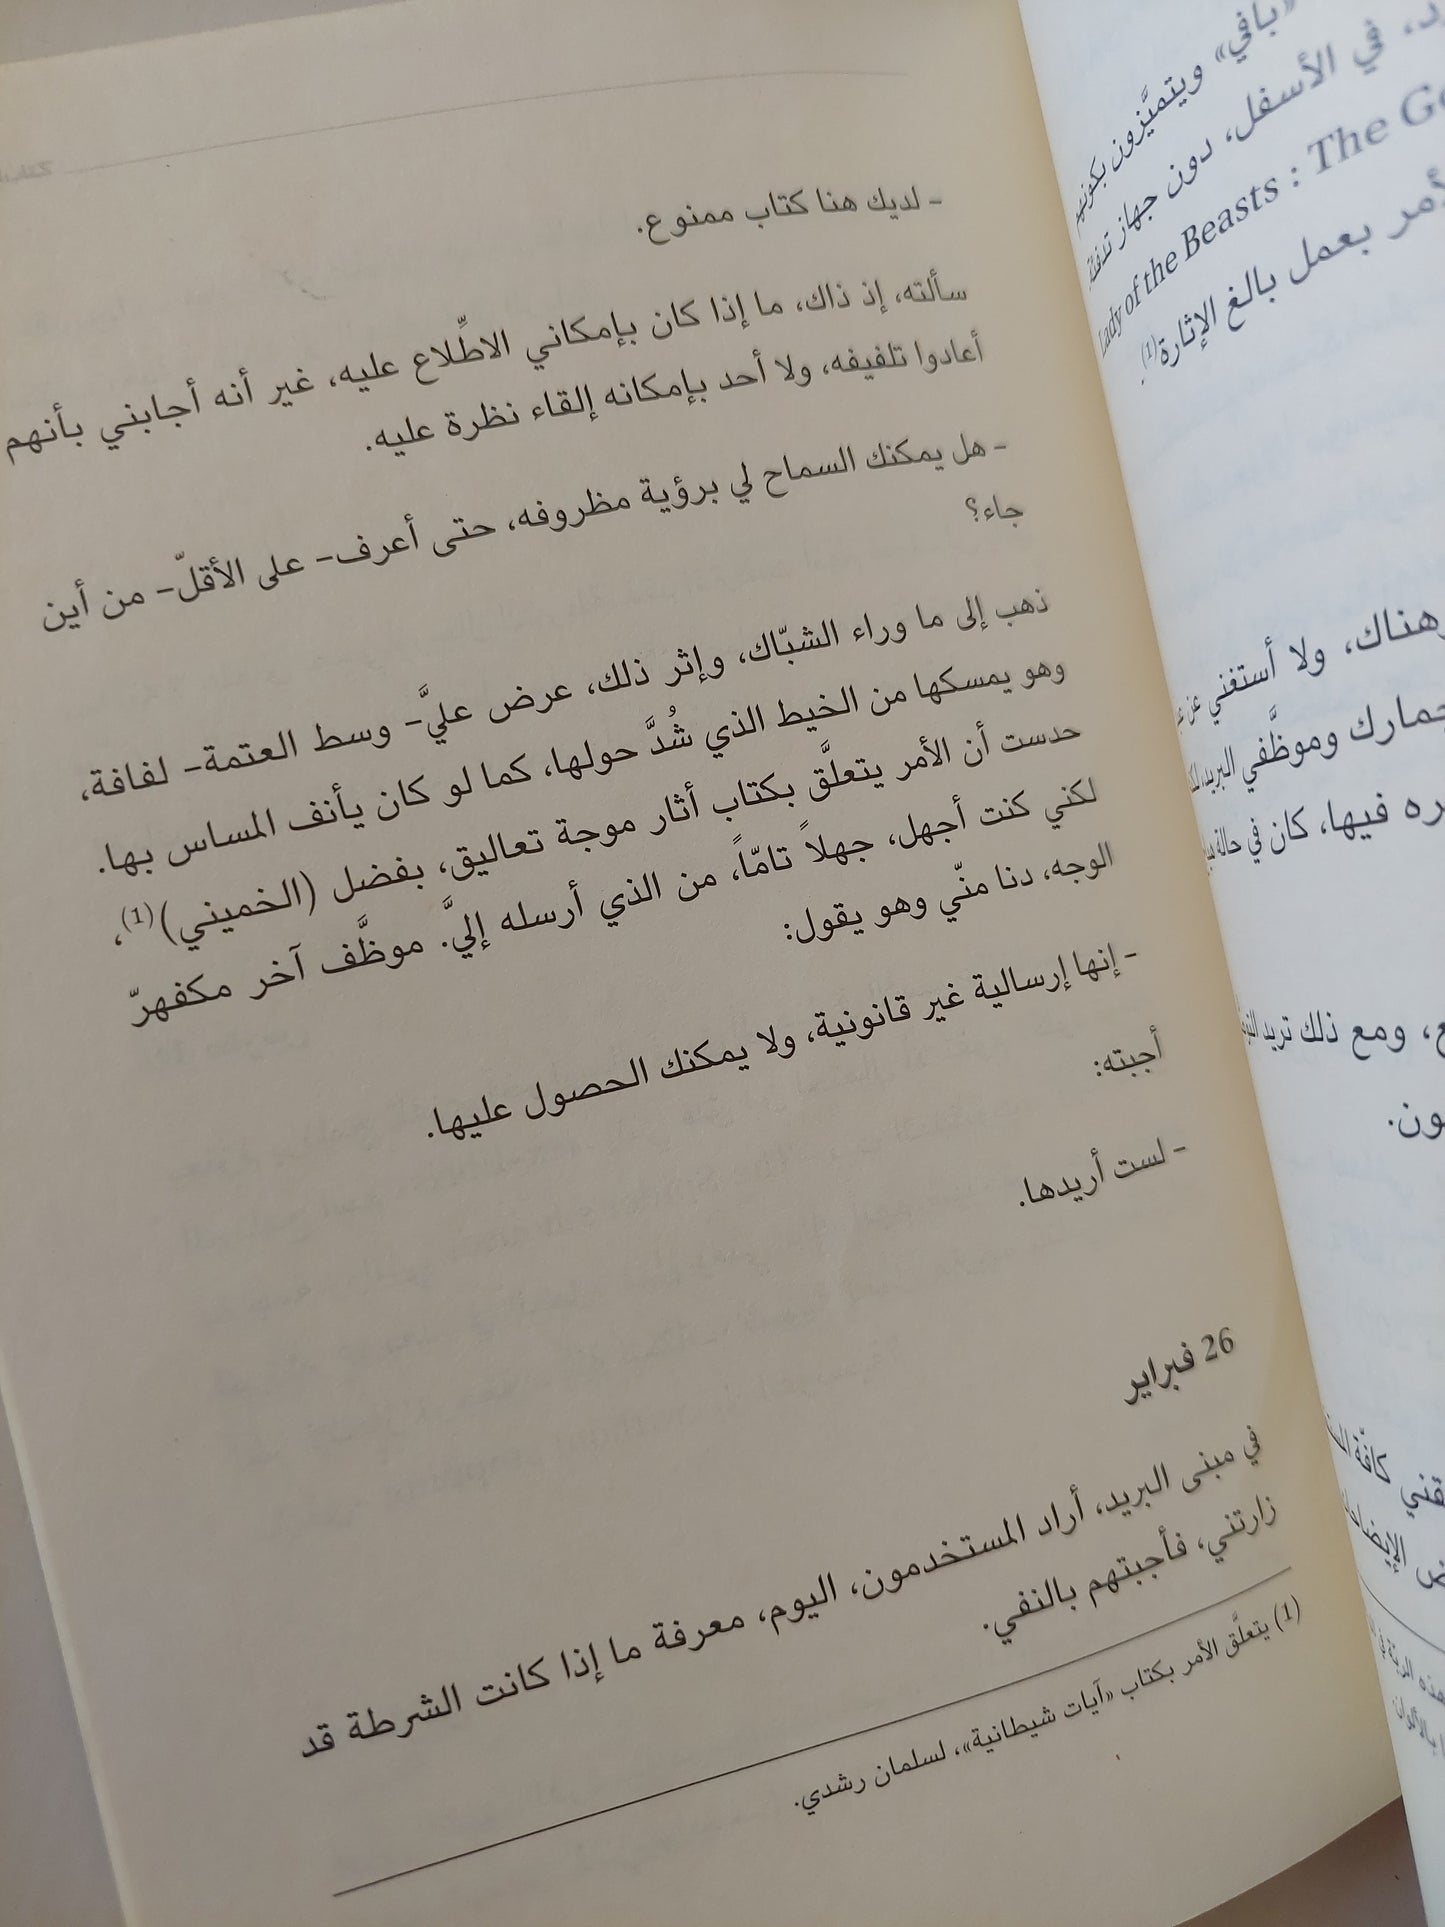 - لديك هنا كتاب ممنوع.
سألته، إذ ذاك، ما إذا كان بإمكاني الاطِّلاع عليه، غير أنه أجابني بأنهم
أعادوا تلفيفه، ولا أحد بإمكانه إلقاء نظرة عليه.
- هل يمكنك السماح لي برؤية مظروفه، حتى أعرف- على الأقلّ- من أين
جاء؟
ذهب إلى ما وراء الشبّاك، وإثر ذلك، عرض عليَّ- وسط العتمة- لفافة،
وهو يمسكها من الخيط الذي شُدَّ حولها، كما لو كان يأنف المساس بها.
حدست أن الأمر يتعلَّق بكتاب أثار موجة تعاليق، بفضل (الخميني)(1)،
لكني كنت أجهل، جهلاً تامّاً، من الذي أرسله إليَّ. موظَّف آخر مكفهرّ
الوجه، دنا منّي وهو يقول:
- إنها إرسالية غير قانونية، ولا يمكنك الحصول عليها.
أجبته:
- لست أريدها.
26 فبراير
في مبنى البريد، أراد المستخدمون، اليوم، معرفة ما إذا كانت الشرطة قد
زارتني، فأجبتهم بالنفي.
(1) يتعلَّق الأمر بكتاب «آيات شيطانية»، لسلمان رشدي.
«بافي» ويتميَّزون بكونهم
في الأسفل، دون جهاز تدفئة
Lady of the Beasts : The
بعمل بالغ الإثارة(1).
وهناك، ولا أستغني عن
وموظَّفي البريد،
فيها، كان في حالة
ومع ذلك تريد
كافّة